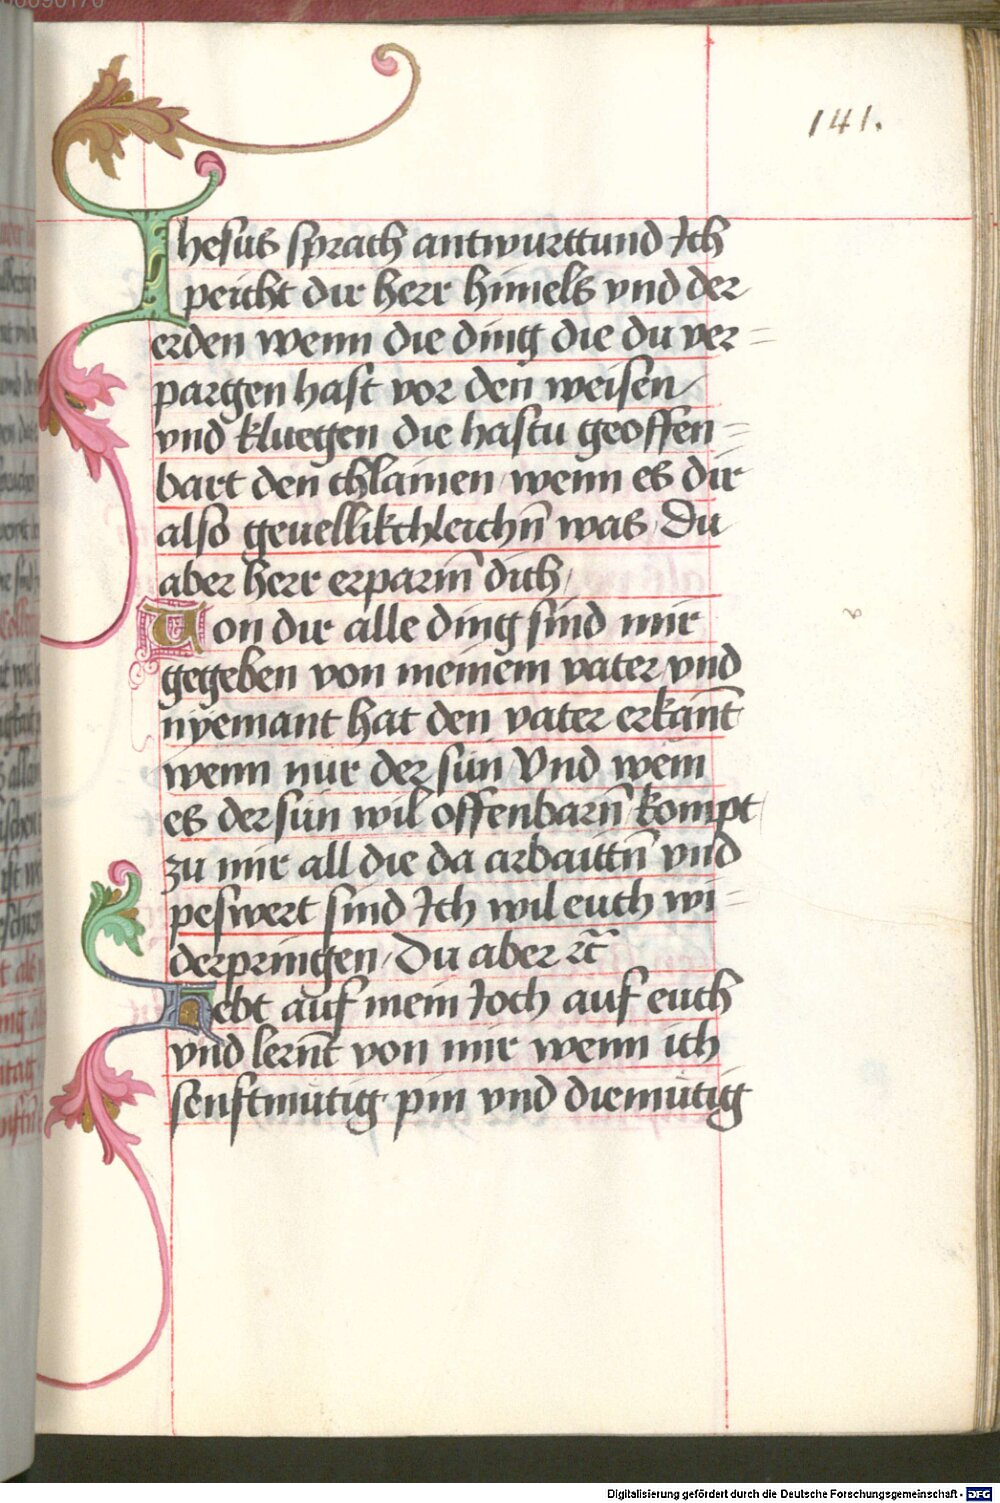 141.
Ihesus sprach antwurttund Ich
peicht dir herr himels vnd der
erden wenn die ding die du ver=
pargen hast vor den weisen
vnd kluegen die hastu geoffen=
bart den chlainen wenn es dir
also geuellikchleichn̄ was / Du
aber herr erparm̄ dich /
Von dir alle ding sind mir
gegeben von meinem vater vnd
nyemant hat den vater erkan̄t
wenn nur der sun Vnd wem
es der sun wil offenbarn̄ kompt
zu mir all die da arbaittn̄ vnd
peswert sind Ich wil euch wi=
derpringen / Du aber ꝛc̄
Hebt auf mein Joch auf euch
vnd lern̄t von mir wenn ich
senftmütig pin vnd diemütig
Digitalisierung gefördert durch die Deutsche Forschungsgemeinschaft - DFG